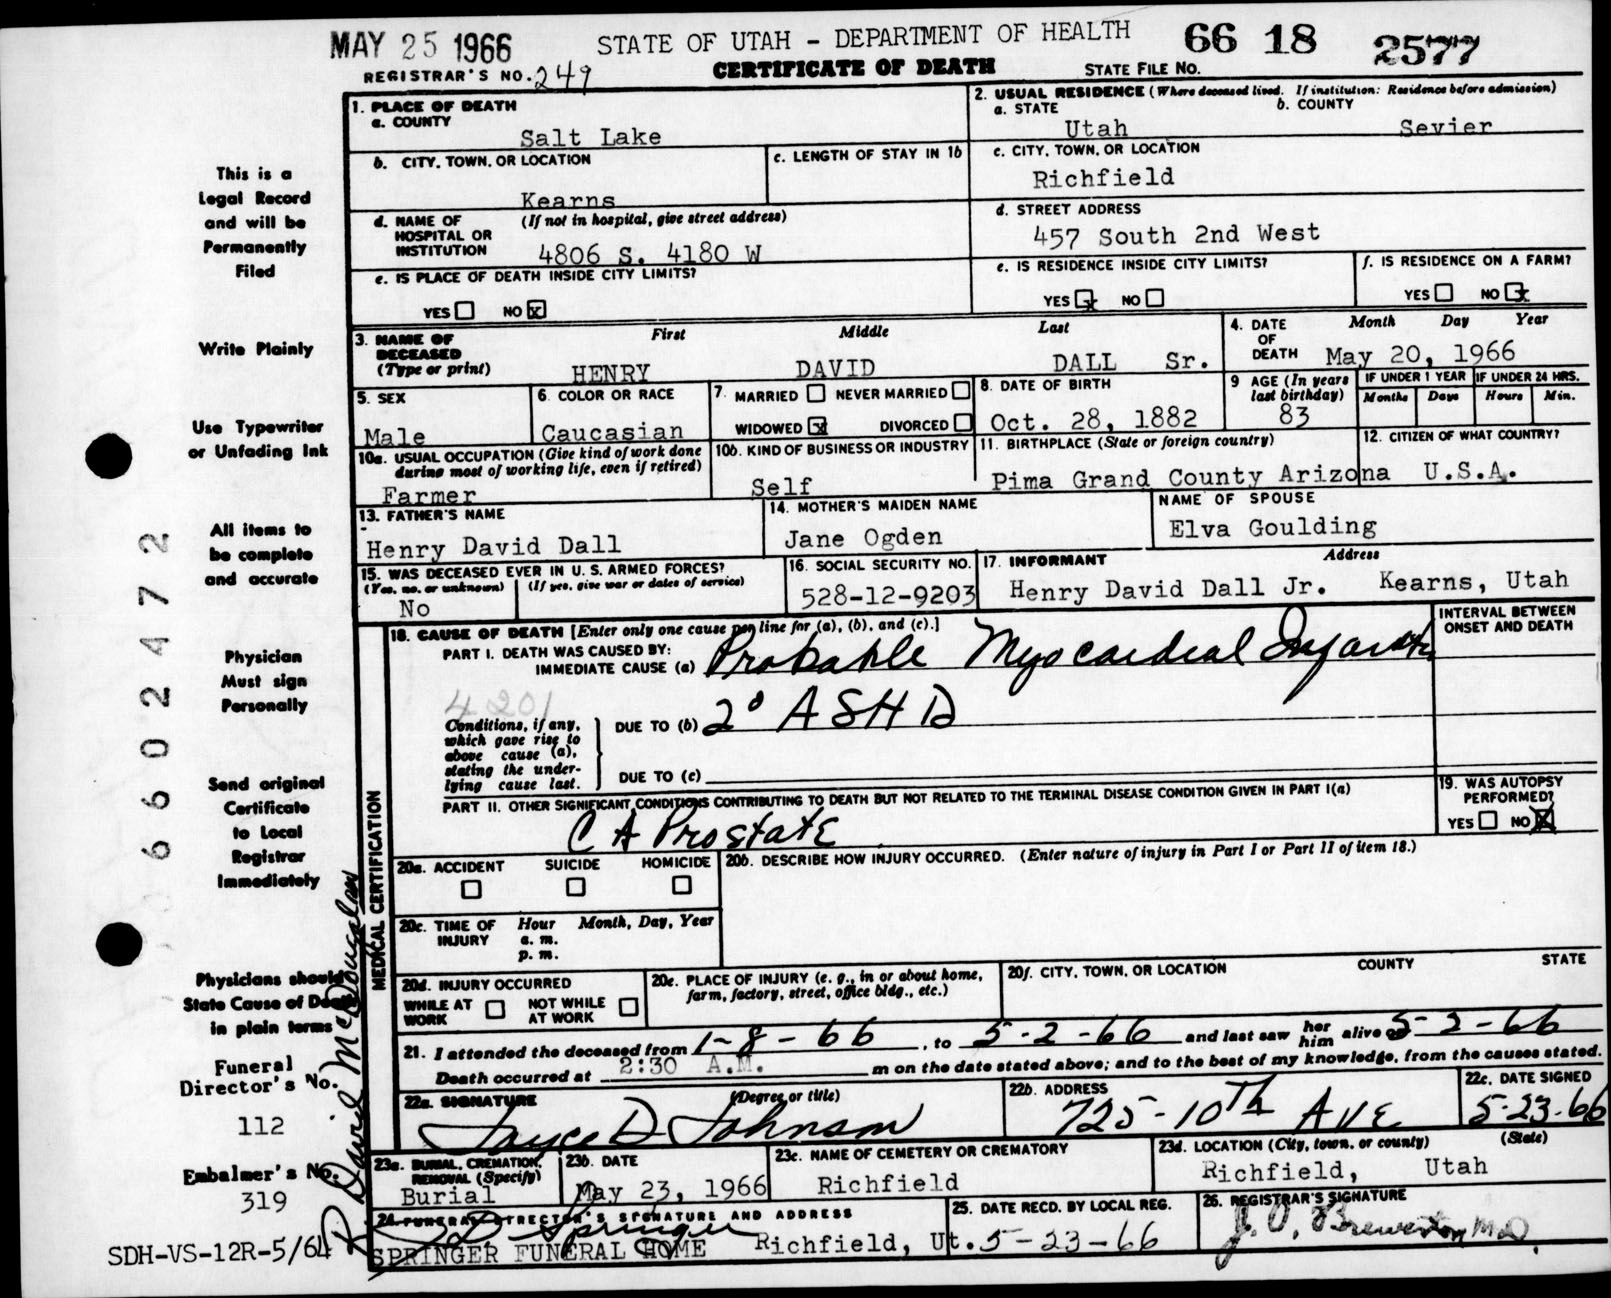 MAY 25 1966 STATE OF UTAH - DEPARTMENT OF HEALTH 66 18 2577
REGISTRAR'S NO. 249 CERTIFICATE OF DEATH STATE FILE NO.
1. PLACE OF DEATH
a. COUNTY
Salt Lake
2. USUAL RESIDENCE (Where deceased lived. If institution: Residence before admission)
a. STATE b. COUNTY
Utah Sevier
b. CITY, TOWN, OR LOCATION
Kearns
c. LENGTH OF STAY IN 1b
c. CITY, TOWN, OR LOCATION
Richfield
d. NAME OF HOSPITAL OR INSTITUTION (If not in hospital, give street address)
4806 S. 4180 W
d. STREET ADDRESS
457 South 2nd West
e. IS PLACE OF DEATH INSIDE CITY LIMITS?
YES NO x
e. IS RESIDENCE INSIDE CITY LIMITS?
YES x NO
f. IS RESIDENCE ON A FARM?
YES NO x
3. NAME OF DECEASED (Type or print)
First Middle Last
HENRY DAVID DALL Sr.
4. DATE OF DEATH Month Day Year
May 20, 1966
5. SEX
Male
6. COLOR OR RACE
Caucasian
7. MARRIED NEVER MARRIED
WIDOWED x DIVORCED
8. DATE OF BIRTH
Oct. 28, 1882
9 AGE (In years last birthday)
83
IF UNDER 1 YEAR IF UNDER 24 HRS.
Months Days Hours Min.
10a. USUAL OCCUPATION (Give kind of work done during most of working life, even if retired)
Farmer
10b. KIND OF BUSINESS OR INDUSTRY
Self
11. BIRTHPLACE (State or foreign country)
Pima Grand County Arizona
12. CITIZEN OF WHAT COUNTRY?
U.S.A.
13. FATHER'S NAME
Henry David Dall
14. MOTHER'S MAIDEN NAME
Jane Ogden
NAME OF SPOUSE
Elva Goulding
15. WAS DECEASED EVER IN U.S. ARMED FORCES?
(Yes, no, or unknown) (If yes, give war or dates of service)
No
16. SOCIAL SECURITY NO.
528-12-9203
17. INFORMANT Address
Henry David Dall Jr. Kearns, Utah
MEDICAL CERTIFICATION
18. CAUSE OF DEATH [Enter only one cause per line for (a), (b), and (c).]
INTERVAL BETWEEN ONSET AND DEATH
PART I. DEATH WAS CAUSED BY:
IMMEDIATE CAUSE (a) Probable Myocardial Infarction
4201
Conditions, if any, which gave rise to above cause (a), stating the underlying cause last.
DUE TO (b) 2° ASHD
DUE TO (c)
PART II. OTHER SIGNIFICANT CONDITIONS CONTRIBUTING TO DEATH BUT NOT RELATED TO THE TERMINAL DISEASE CONDITION GIVEN IN PART I(a)
CA Prostate
19. WAS AUTOPSY PERFORMED?
YES NO X
20a. ACCIDENT SUICIDE HOMICIDE
20b. DESCRIBE HOW INJURY OCCURRED. (Enter nature of injury in Part I or Part II of item 18.)
20c. TIME OF INJURY Hour Month, Day, Year
a. m.
p. m.
20d. INJURY OCCURRED
WHILE AT WORK NOT WHILE AT WORK
20e. PLACE OF INJURY (e. g., in or about home, farm, factory, street, office bldg., etc.)
20f. CITY, TOWN, OR LOCATION COUNTY STATE
21. I attended the deceased from 1-8-66, to 5-2-66 and last saw her him alive on 5-2-66
Death occurred at 2:30 A.M. m on the date stated above; and to the best of my knowledge, from the causes stated.
22a. SIGNATURE (Degree or title)
Joyce D Johnson
22b. ADDRESS
725-10th AVE
22c. DATE SIGNED
5-23-66
23a. BURIAL, CREMATION, REMOVAL (Specify)
Burial
23b. DATE
May 23, 1966
23c. NAME OF CEMETERY OR CREMATORY
Richfield
23d. LOCATION (City, town, or county) (State)
Richfield, Utah
24. FUNERAL DIRECTOR'S SIGNATURE AND ADDRESS
Springer
SPRINGER FUNERAL HOME Richfield, Ut.
25. DATE RECD. BY LOCAL REG.
5-23-66
26. REGISTRAR'S SIGNATURE
J. O. Brewerton M.D.
This is a
Legal Record
and will be
Permanently
Filed
Write Plainly
Use Typewriter
or Unfading Ink
All items to
be complete
and accurate
Physician
Must sign
Personally
Send original
Certificate
to Local
Registrar
Immediately
Physicians should
State Cause of Death
in plain terms
Funeral
Director's No.
112
Embalmer's No.
319
SDH-VS-12R-5/64
David McDougalson
0 6 6 0 2 4 7 2